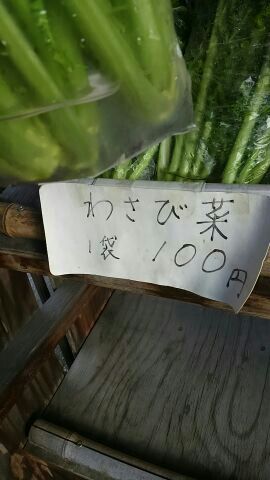 わさび菜
1袋 100円